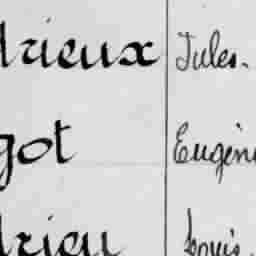 drieux Jules.
got Eugèn
drieu Louis.